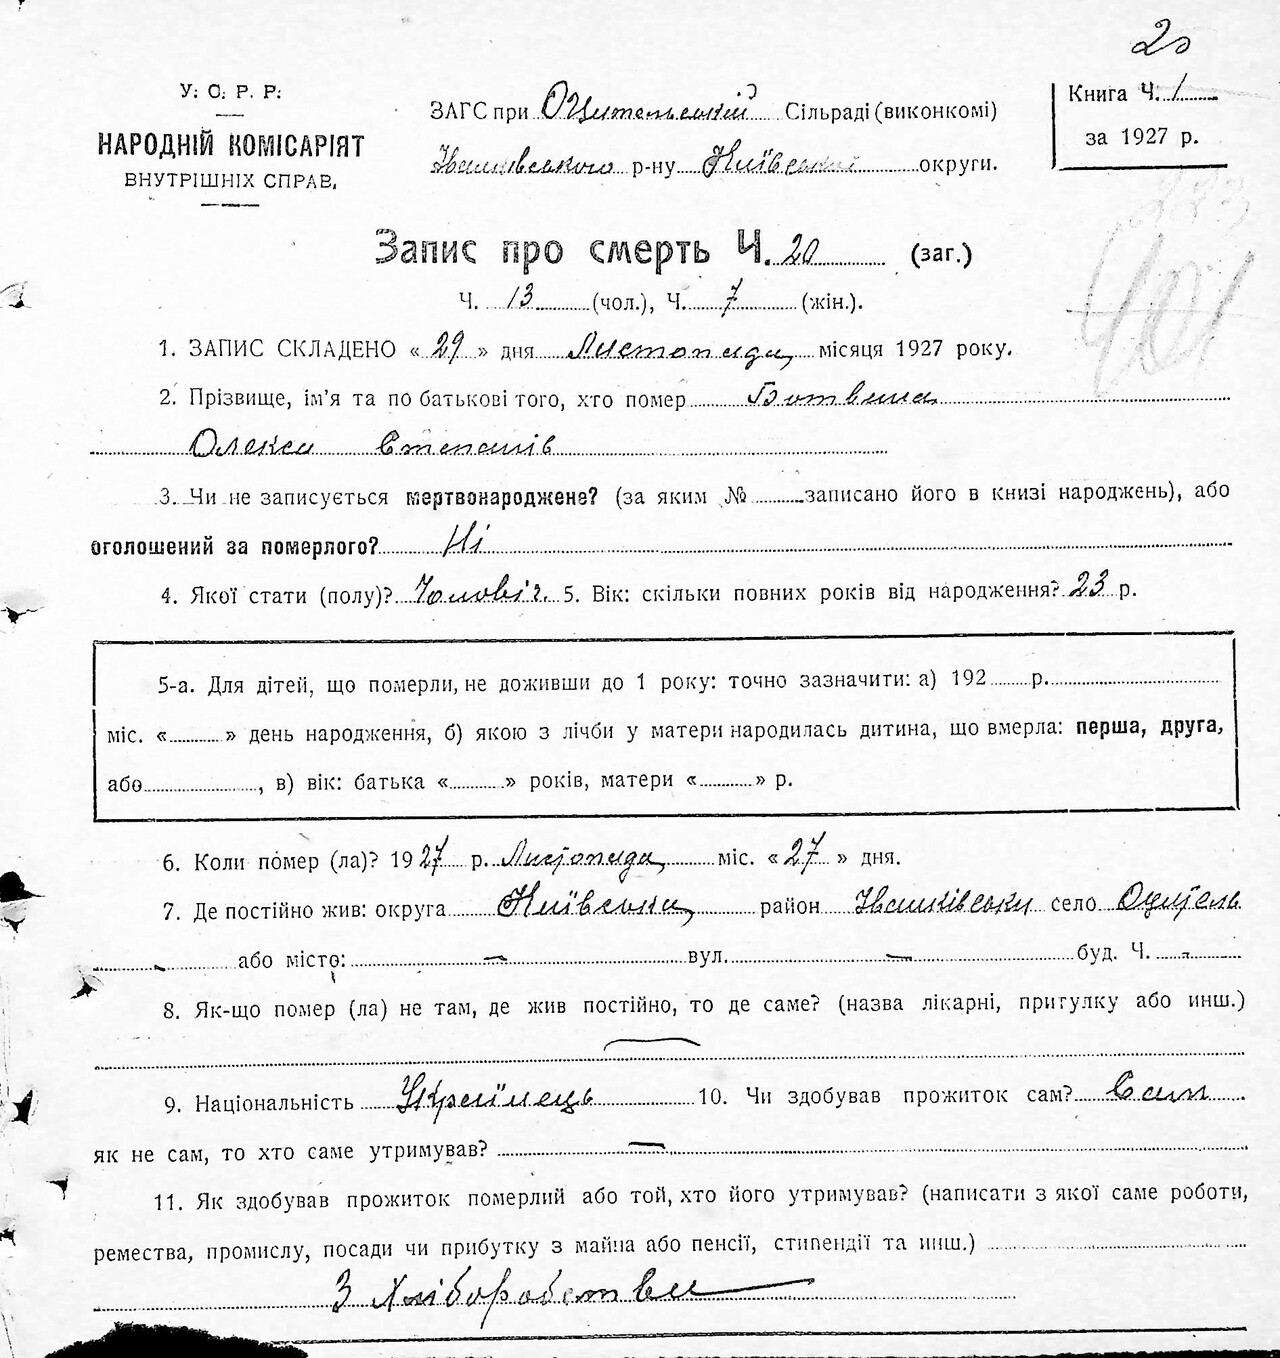 20
У. С. Р. Р.
НАРОДНІЙ КОМІСАРІЯТ
ВНУТРІШНІХ СПРАВ.
ЗАГС при Оцительській Сільраді (виконкомі)
Іванківського р-ну Київської округи.
Книга Ч. 1
за 1927 р.
283
401
Запис про смерть Ч. 20 (заг.)
Ч. 13 (чол.), Ч. 7 (жін.).
1. ЗАПИС СКЛАДЕНО « 29 » дня Листопада місяця 1927 року.
2. Прізвище, ім'я та по батькові того, хто помер Ботвина
Олекса Степанів
3. Чи не записується мертвонароджене? (за яким № записано його в книзі народжень), або
оголошений за померлого? Ні
4. Якої стати (полу)? Чоловіч. 5. Вік: скільки повних років від народження? 23 р.
5-а. Для дітей, що померли, не доживши до 1 року: точно зазначити: а) 192 р.
міс. « » день народження, б) якою з лічби у матери народилась дитина, що вмерла: перша, друга,
або , в) вік: батька « » років, матери « » р.
6. Коли помер (ла)? 1927 р. Листопада міс. « 27 » дня.
7. Де постійно жив: округа Київська район Іванківськи село Оцитель
або місто: — вул. — буд. Ч. -
8. Як-що помер (ла) не там, де жив постійно, то де саме? (назва лікарні, притулку або инш.)
—
9. Національність Українець 10. Чи здобував прожиток сам? Сам .
як не сам, то хто саме утримував? —
11. Як здобував прожиток померлий або той, хто його утримував? (написати з якої саме роботи,
ремества, промислу, посади чи прибутку з майна або пенсії, стипендії та инш.)
З Хліборобства